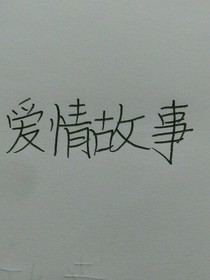 爱情故事